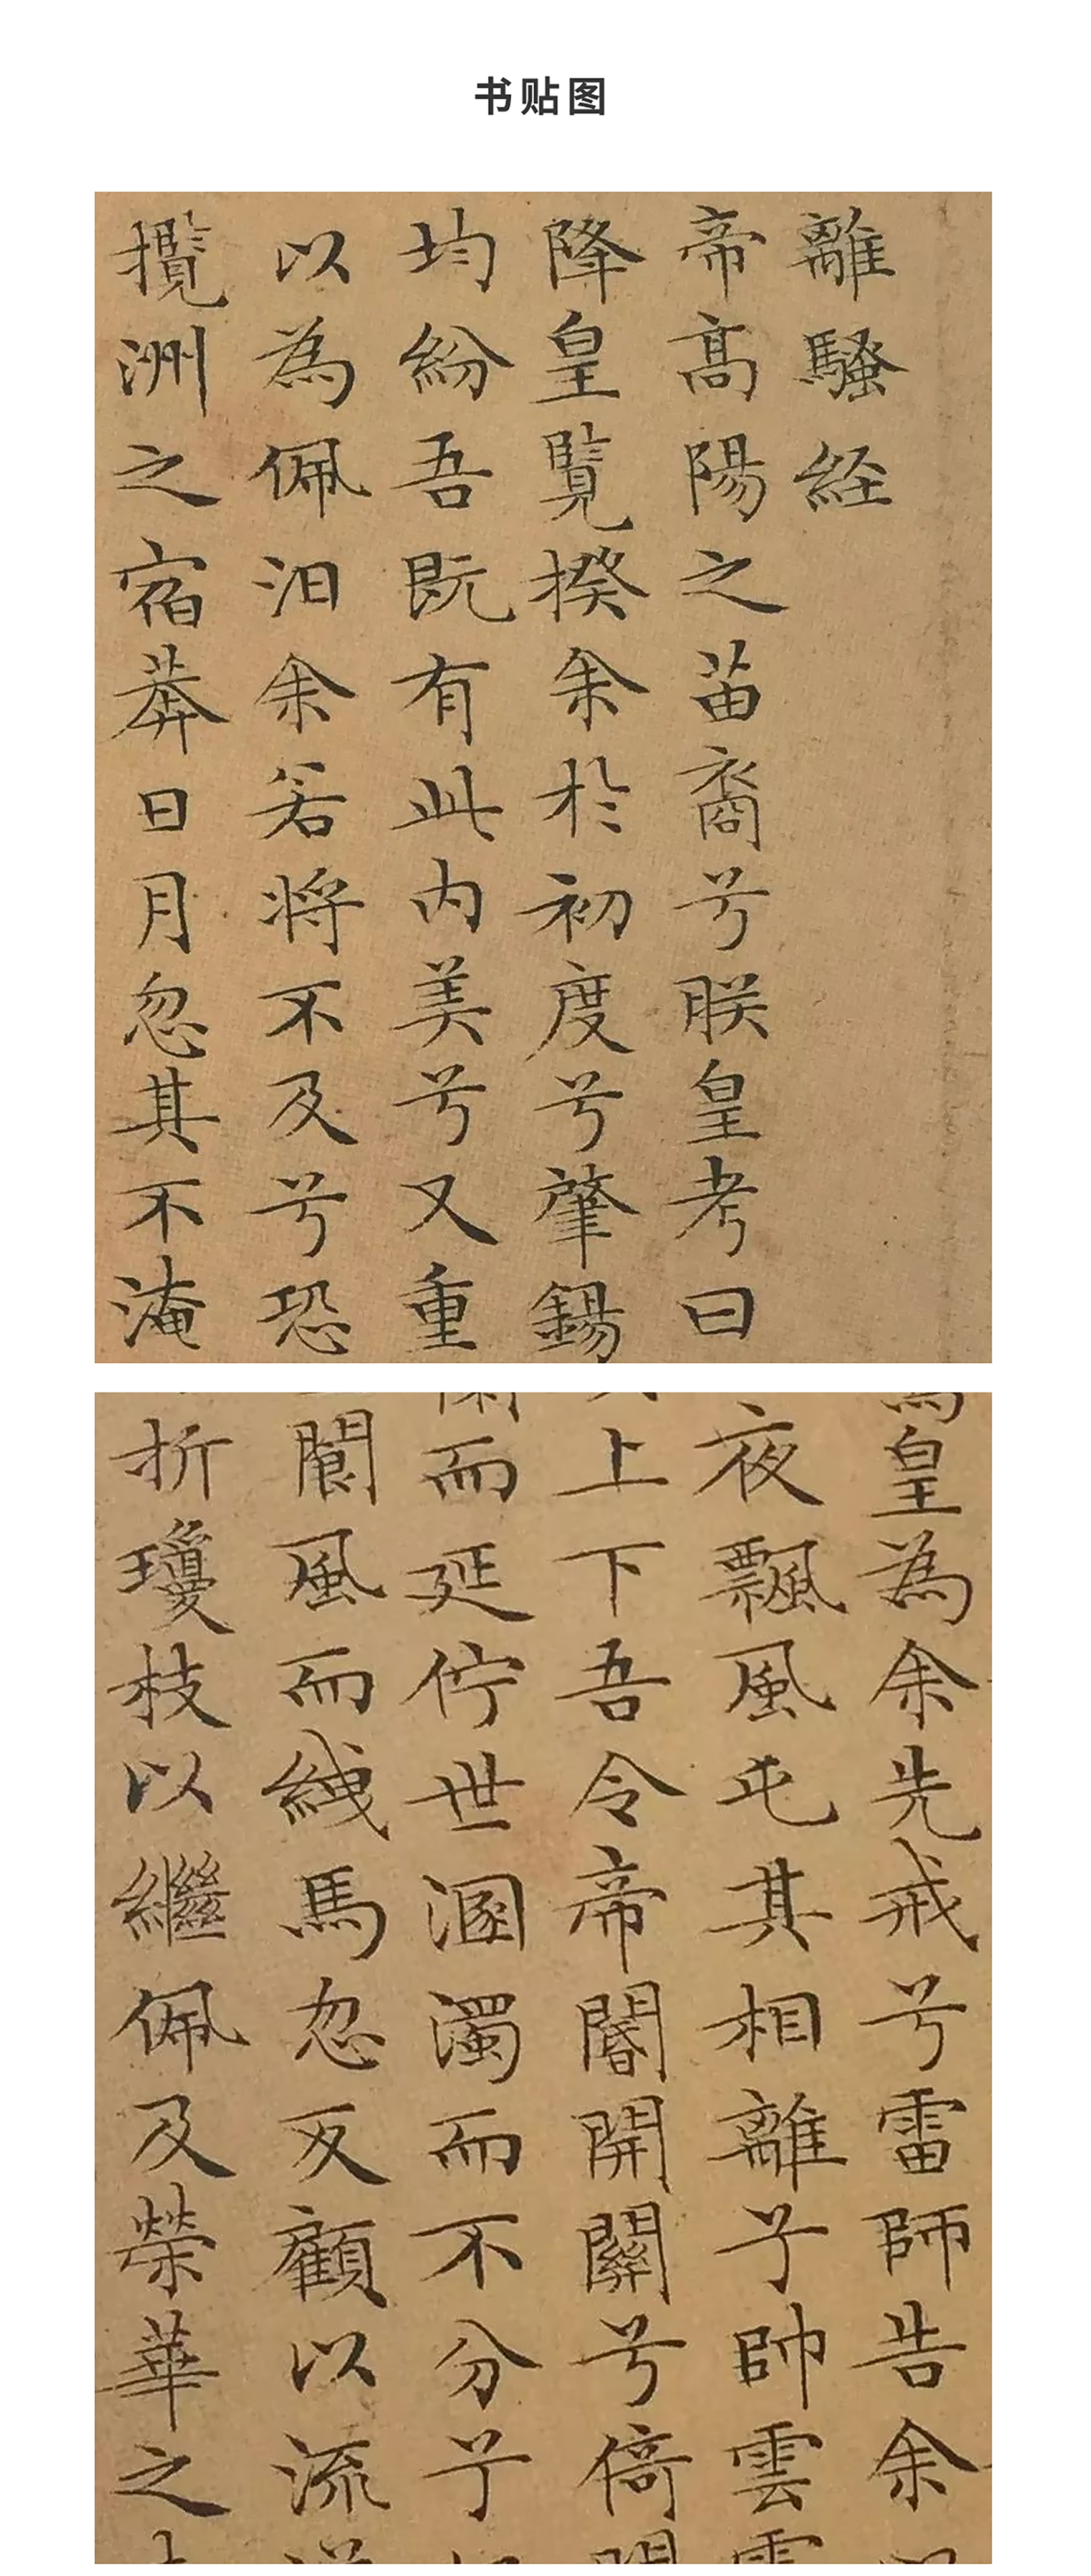 书贴图
離騷經
帝高陽之苗裔兮朕皇考曰
降皇覽揆余於初度兮肇錫
均紛吾既有此内美兮又重
以為佩汩余若將不及兮恐
攬洲之宿莽日月忽其不淹
皇為余先戒兮雷師告余
夜飄風屯其相離兮帥雲
上下吾令帝閽開關兮倚
而延佇世溷濁而不分兮
閬風而緤馬忽反顧以流
折瓊枝以繼佩及榮華之